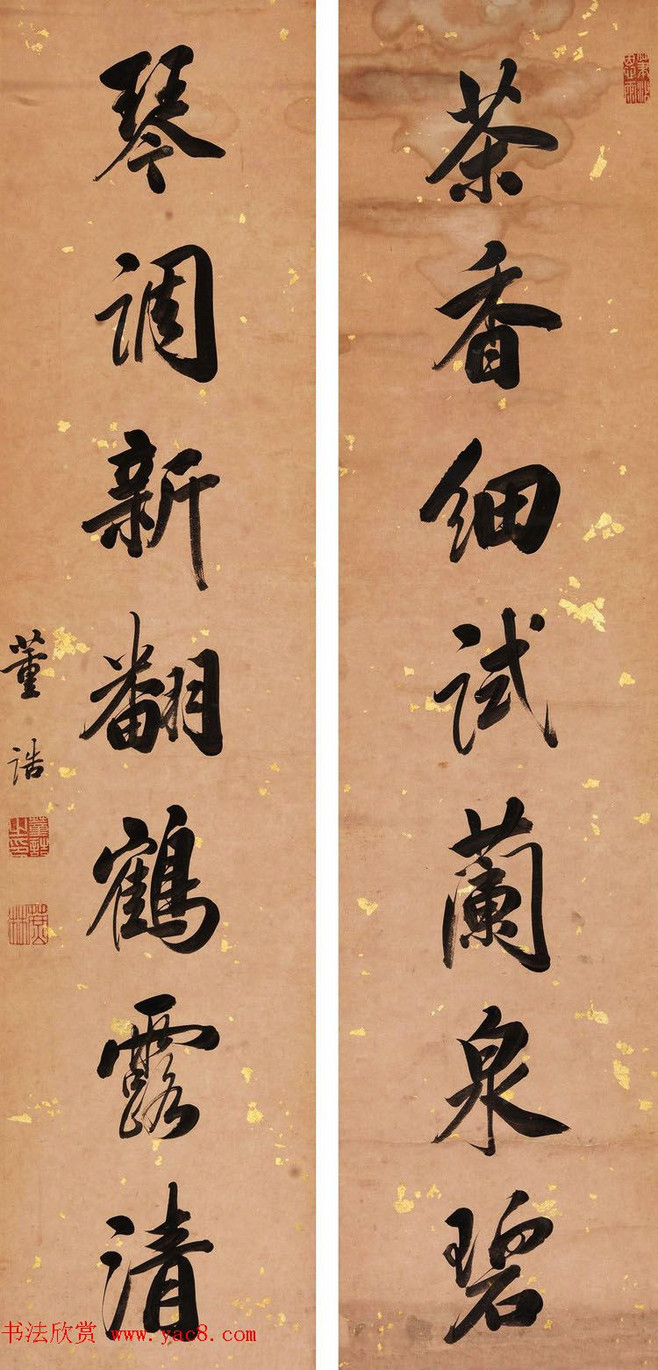 茶香细試蘭泉碧
琴调新翻鶴露清
董誥
董誥之印
书法欣赏 www.yac8.com